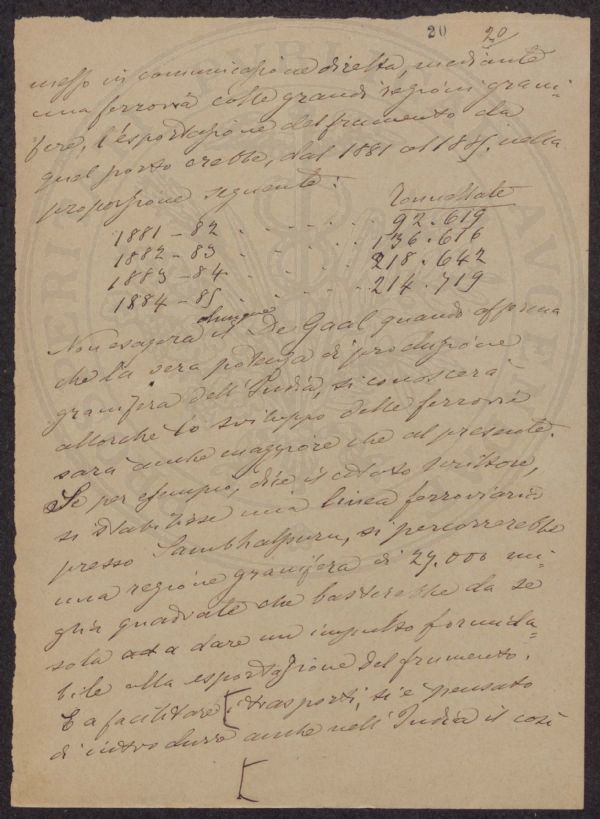 20 20
messo in comunicazione diretta, mediante
una ferrovia colle grandi regioni grani=
fere, l'esportazione del frumento da
quel porto crebbe, dal 1881 al 1885. nella
proporzione seguente:
Tonnellate
1881-82 . . . . . . 92.619
1882-83 . . . . . . 136.616
1883-84 . . . . . . 218.642
1884-85 . . . . . . 214.719
Non esagera dunque il De Gaal quando afferma
che la vera potenza di produzione
granifera dell'India, si conoscerà
allorché lo sviluppo delle ferrovie
sarà anche maggiore che al presente.
Se per esempio, dice il citato scrittore,
si stabilisse una linea ferroviaria
presso Sambhalpuru, si percorrerebbe
una regione granifera di 29.000 mi=
glia quadrate che basterebbe da se
sola a dare un impulso formida=
bile alla esportazione del frumento.
E a facilitare [i trasporti, si è pensato
di introdurre anche nell'India il così
[